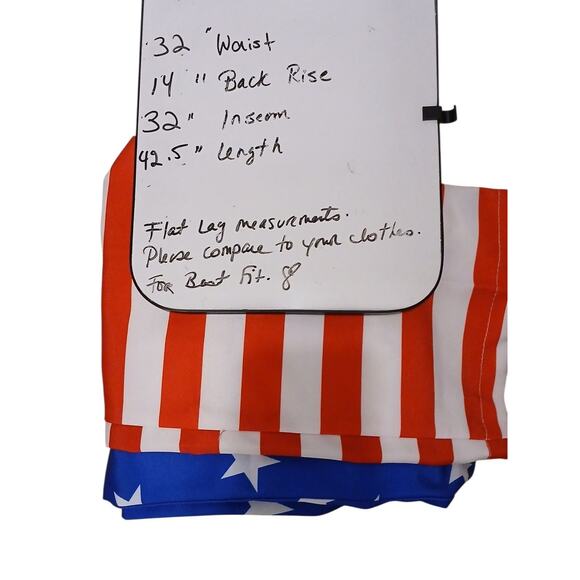 32 " Waist
14 " Back Rise
32 " Inseam
42.5 " Length
Flat Lay measurements.
Please compare to your clothes.
FOR Best Fit.